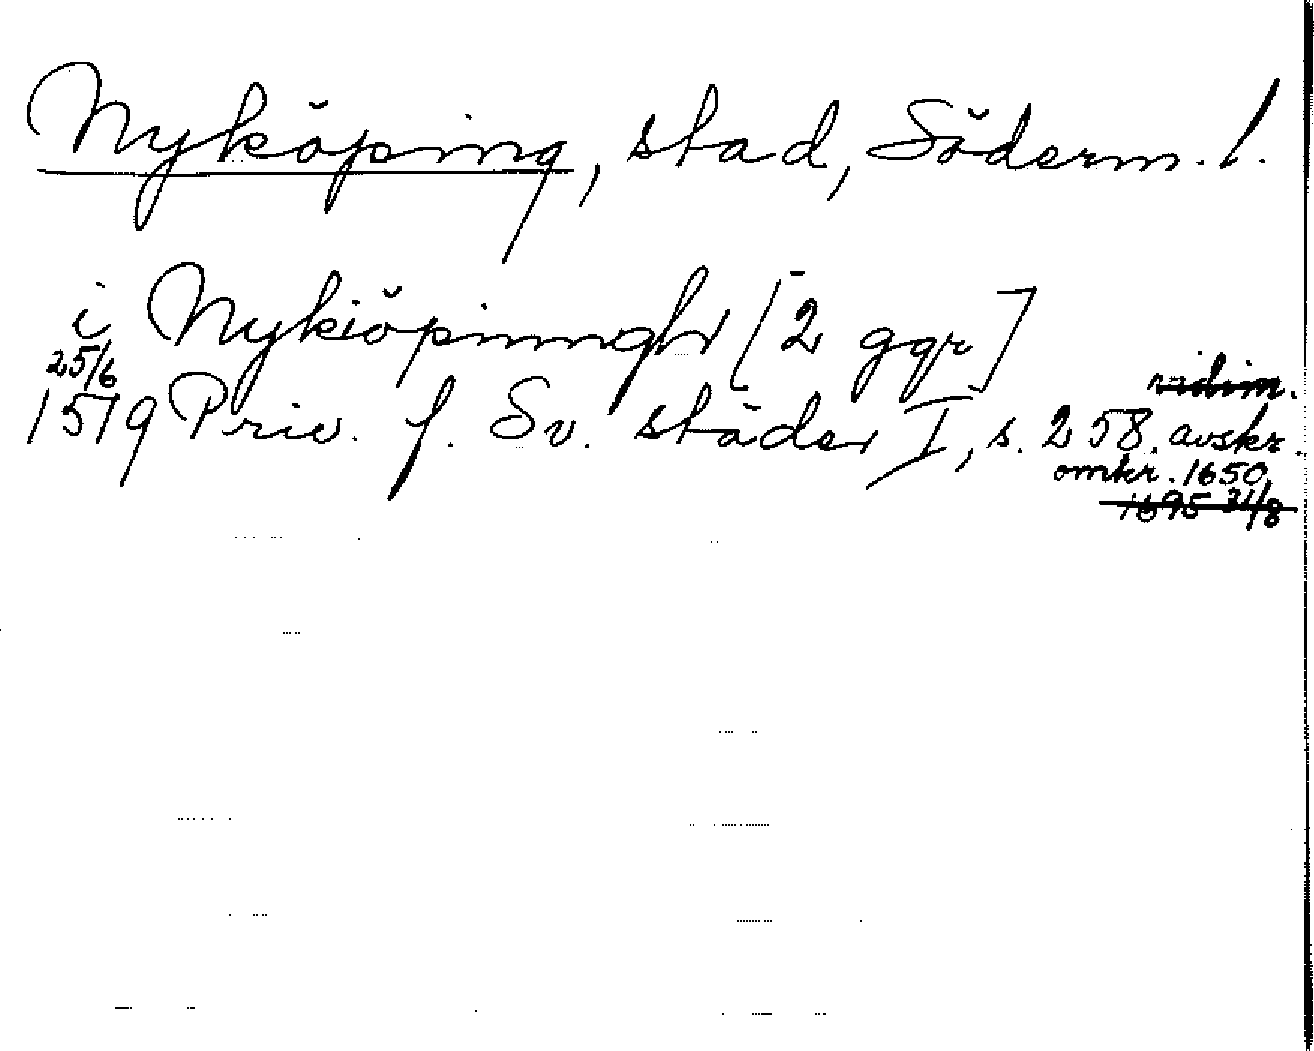 Nyköping, stad, Söderm. l.
i Nykiöpinngh [2 ggr]
25/6
1579 Priv. f. Sv. städer I, s. 258. avskr.
omkr. 1650
1695 31/8